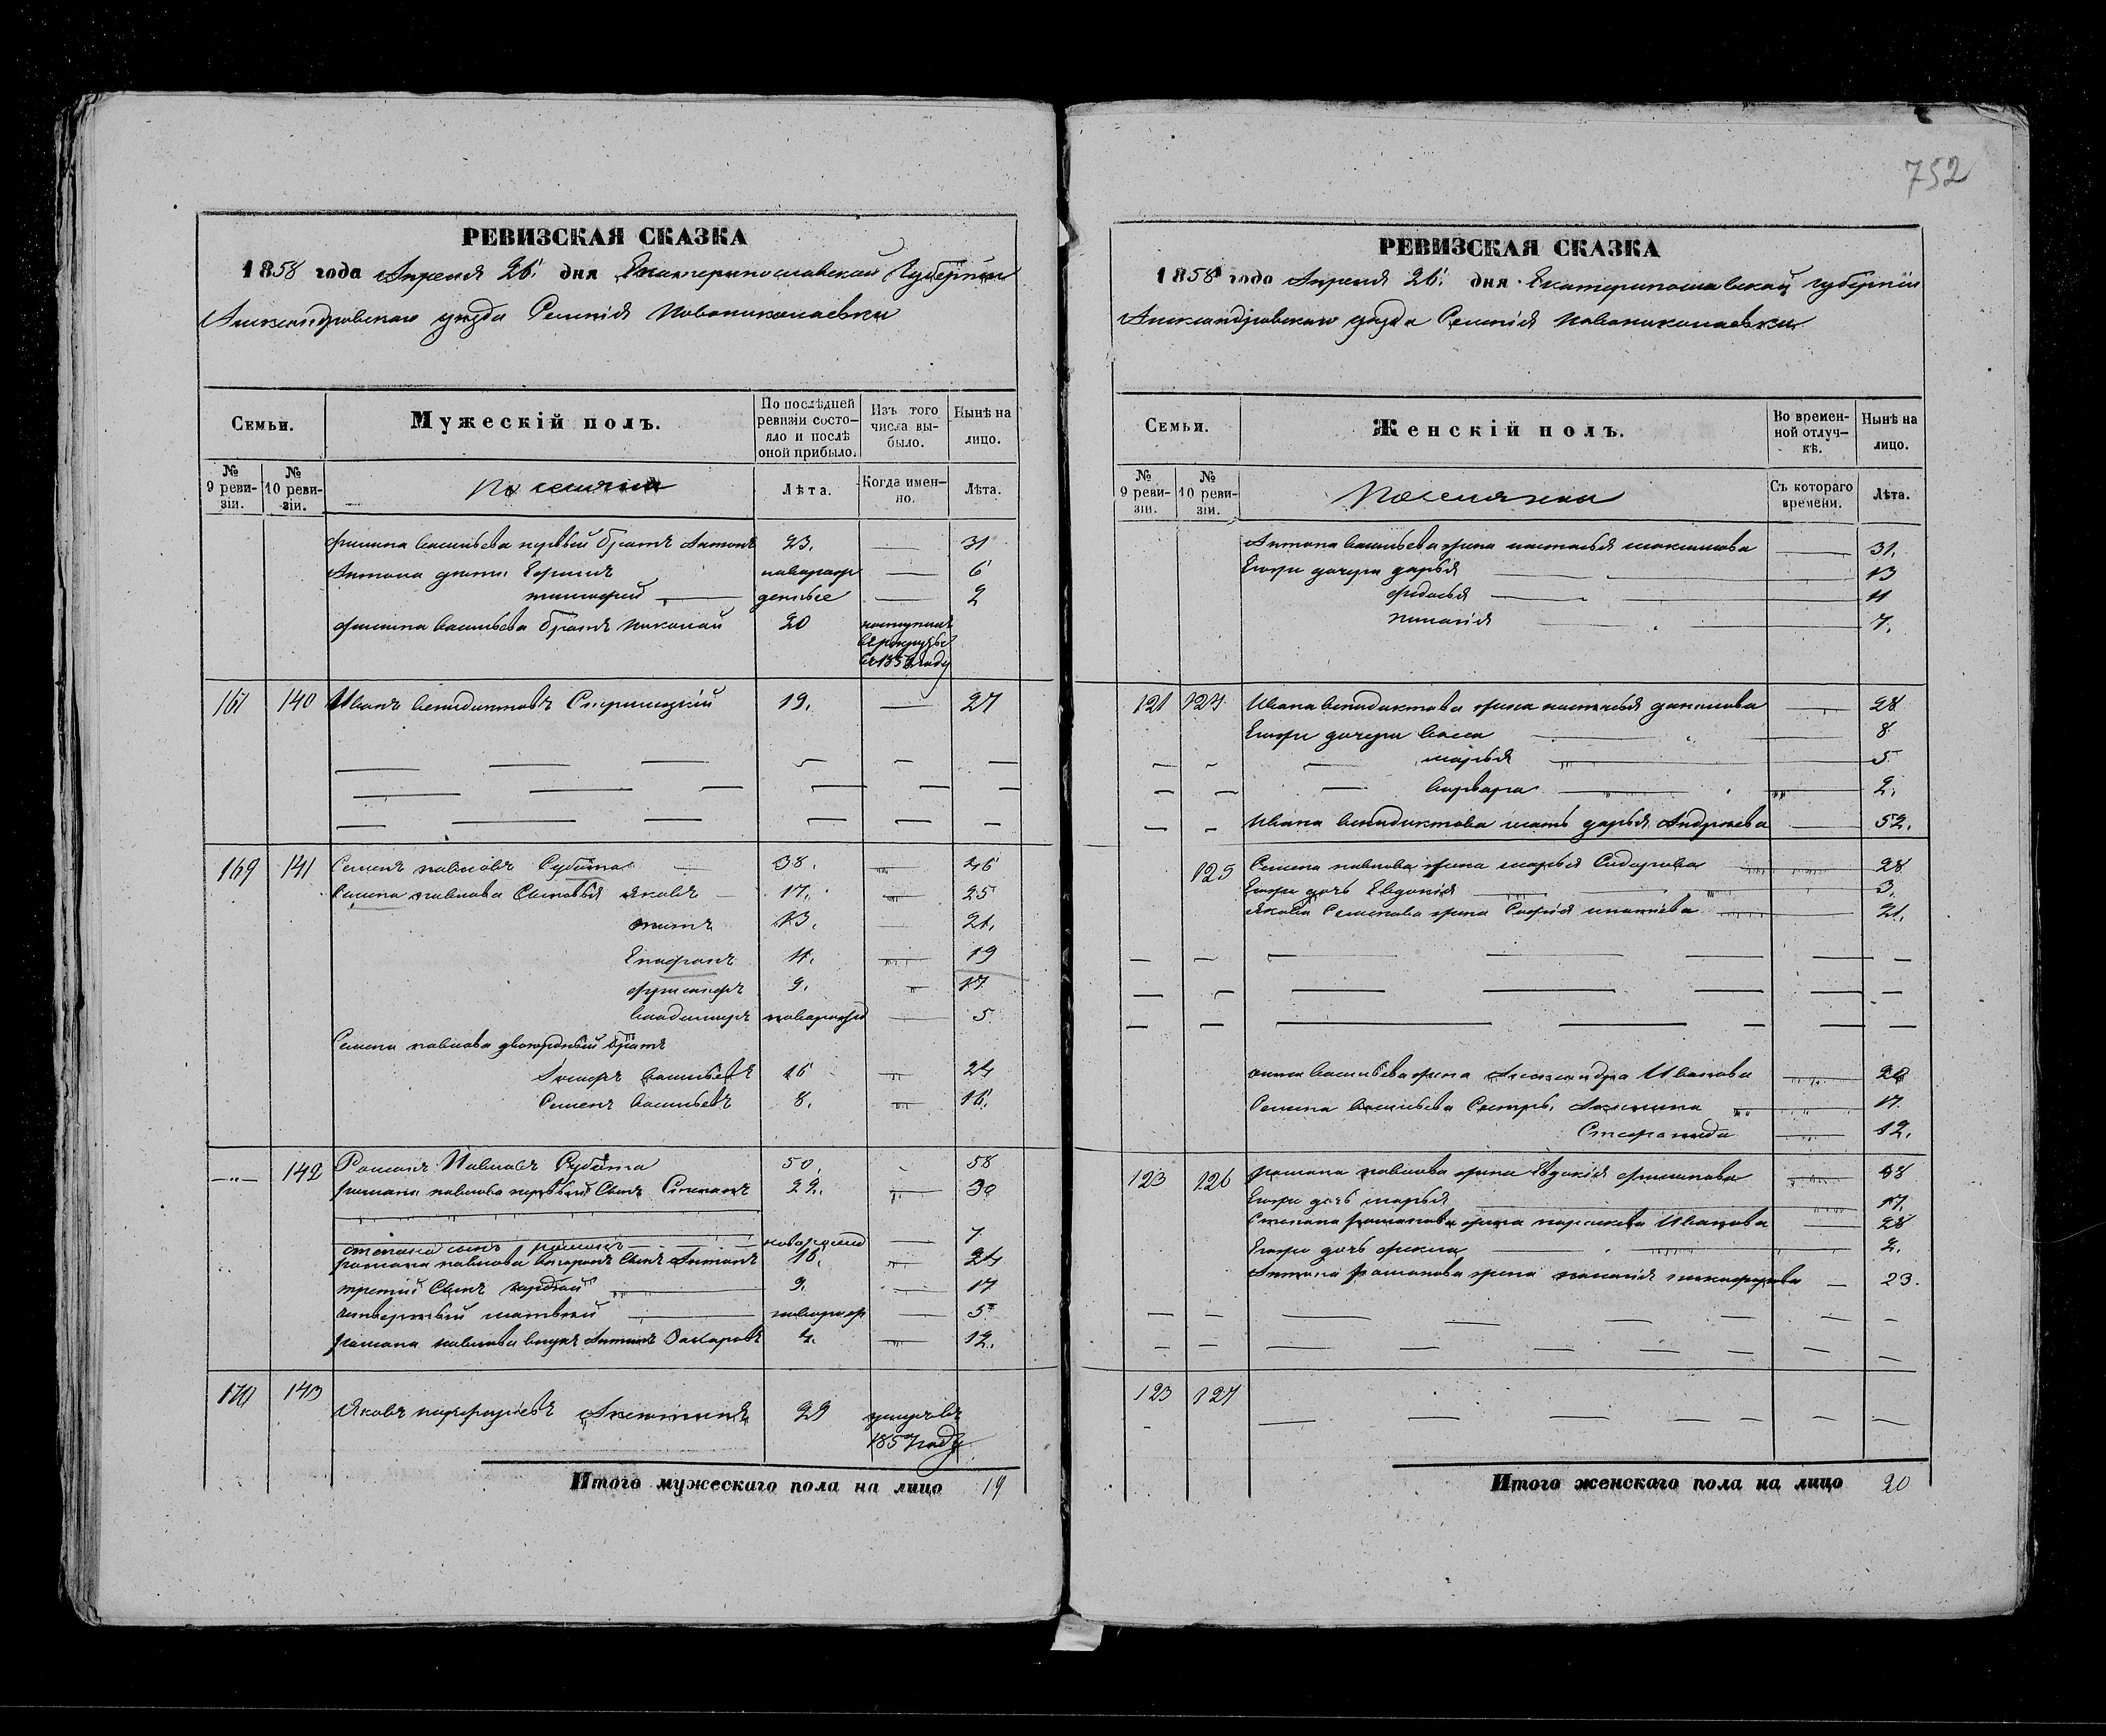 РЕВИЗСКАЯ СКАЗКА
1858 года Апреля 26. дня Екатеринославской Губерніи
Александровскаго уезда Селенія Новониколаевки
Семьи.
Мужескій полъ.
По послѣдней ревизіи состояло и послѣ оной прибыло.
Изъ того числа выбыло.
Нынѣ на лицо.
№ 9 ревизіи.
№ 10 ревизіи.
Поселяне
Лѣта.
Когда именно.
Лѣта.
филипа васильева первый братъ Антонъ 23. 31
Антона дети: новорож 6
тимофей денные 2
филипа васильева братъ николай 20 поступилъ въ рекруты въ 185 году
161 140 Иванъ венидиктовъ 19. 27
169 141 Семенъ павловъ Субота 38. 46
Семена павлова Сыновья яковъ 17. 25
титъ 13. 21.
Епафранъ 11. 19
9. 17
владимиръ новорожд 5
Семена павлова двоюродный братъ
васильевъ 16 24
Семенъ васильевъ 8. 16.
142 Романъ Павловъ Субота 50. 58
романа павлова первый Сынъ Степанъ 22. 30
степана сынъ романъ новорожд 7
романа павлова вторый Сынъ Антонъ 16. 24
третій Сынъ 9. 17
четвертый матвей новорож 5
романа павлова внукъ Антонъ Захаровъ 4. 12.
170 143 Яковъ 29 умеръ въ 1857 году
Итого мужескаго пола на лицо 19
752
РЕВИЗСКАЯ СКАЗКА
1858 года Апреля 26. дня Екатеринославской губерніи
Александровскаго уезда Селенія Новониколаевки
Семьи.
Женскій полъ.
Во временной отлучкѣ.
Нынѣ на лицо.
№ 9 ревизіи.
№ 10 ревизіи.
Поселянки
Съ котораго времени.
Лѣта.
Антона васильева жена настасья максимова 31.
Егоже дочери дарья 13
федосья 11
пилагія 7.
121 124 Ивана венидиктова жена настасья данилова 28
Егоже дочери васса 8
марья 5
варвара 2.
Ивана венидиктова мать дарья Андреева 52.
125 Семена павлова жена марья Сидорова 28
Егоже дочь Евдокія 3.
якова Семенова жена Софія 21.
васильева жена Александра Иванова 20
Семена васильева Сестры. 17.
Степанида 12.
123 126 романа павлова жена Евдокія филипова 38
Егоже дочь марья 17.
Степана романова жена парасковея Иванова 28
Егоже дочь фекла 2.
Антона романова жена пилагія никифорова 23.
123 127
Итого женскаго пола на лицо 20